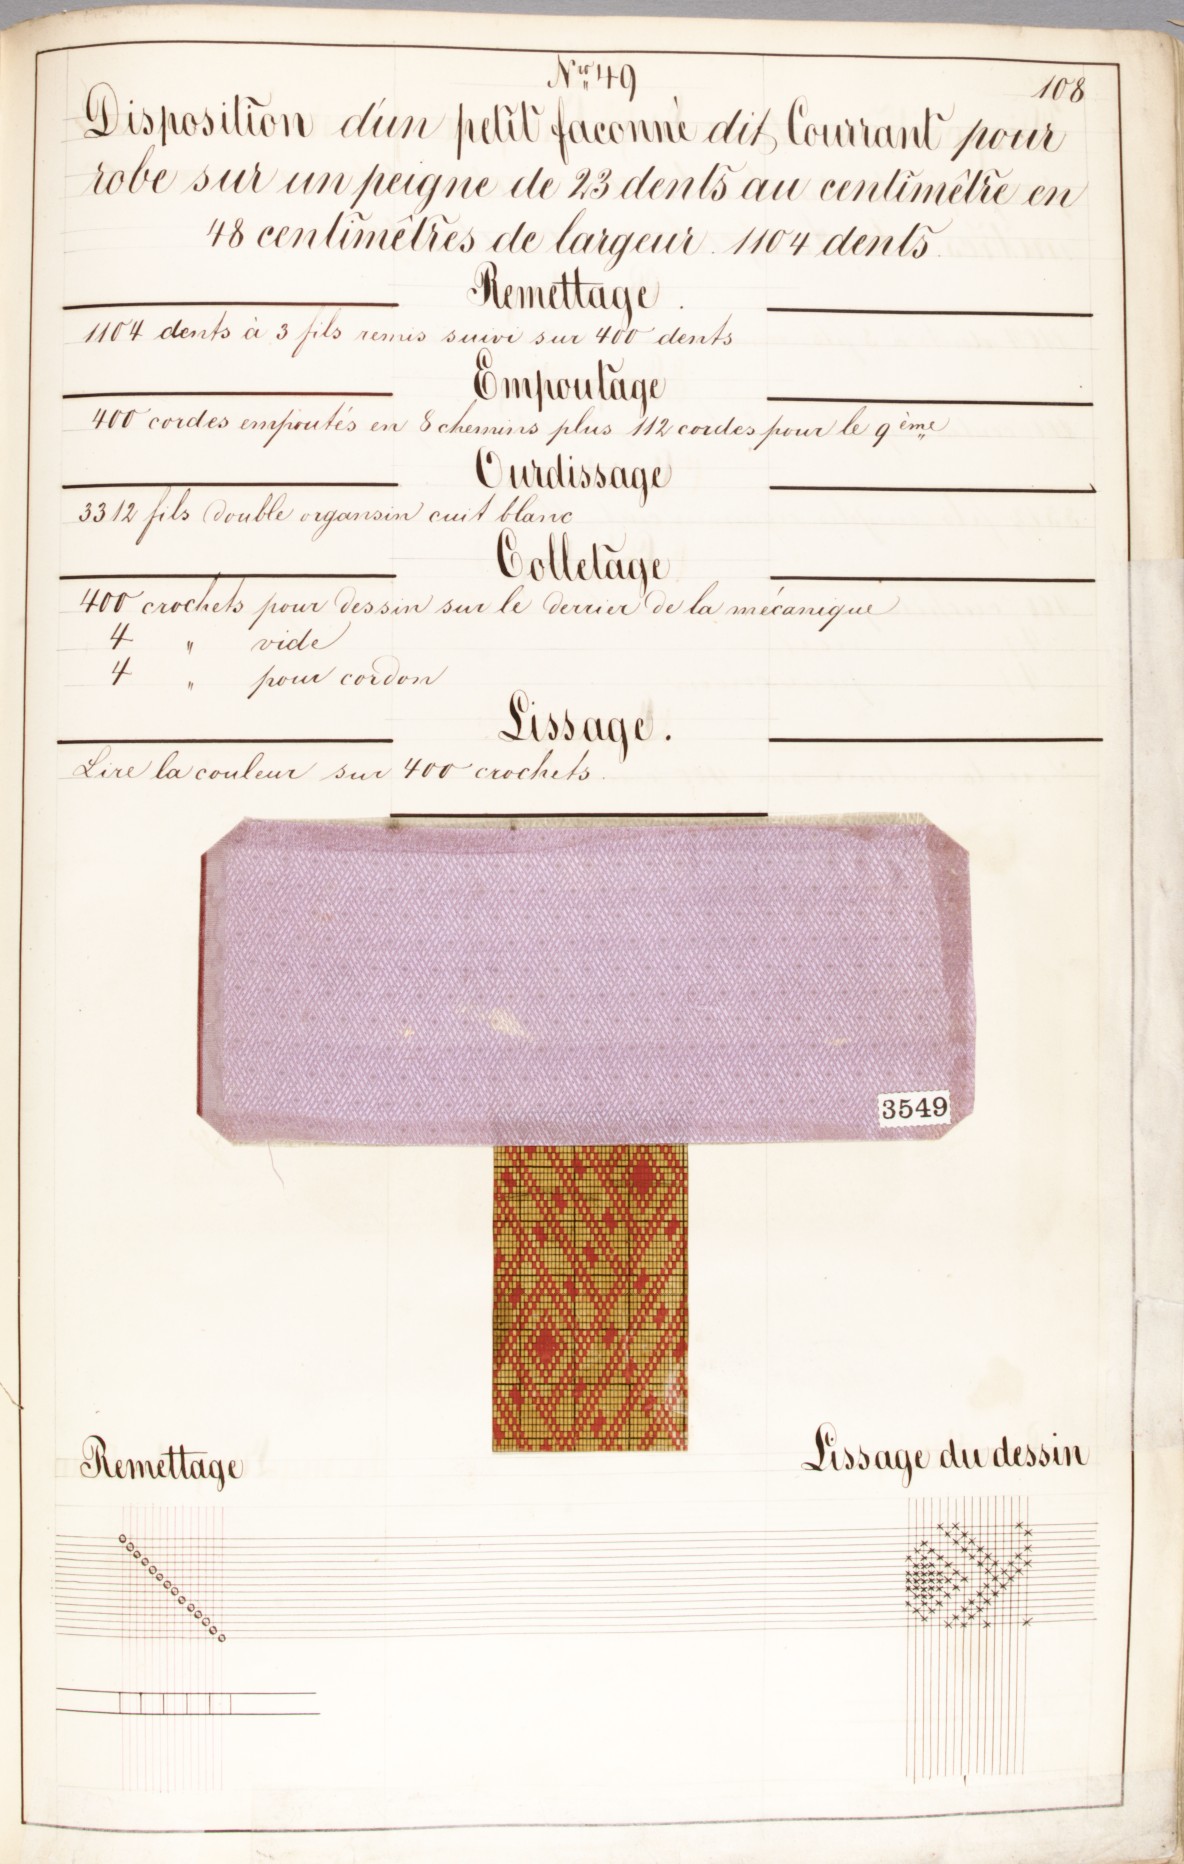 Nro 49
108
Disposition d'un petit faconné dit Courrant pour
robe sur un peigne de 23 dents au centimêtre en
48 centimêtres de largeur. 1104 dents.
Remettage.
1104 dents à 3 fils remis suivi sur 400 dents
Empoutage
400 cordes empoutés en 8 chemins plus 112 cordes pour le 9ème
Ourdissage
3312 fils double organsin cuit blanc
Colletage
400 crochets pour dessin sur le derrier de la mécanique
4 " vide
4 " pour cordon
Lissage.
Lire la couleur sur 400 crochets.
3549
Remettage
Lissage du dessin